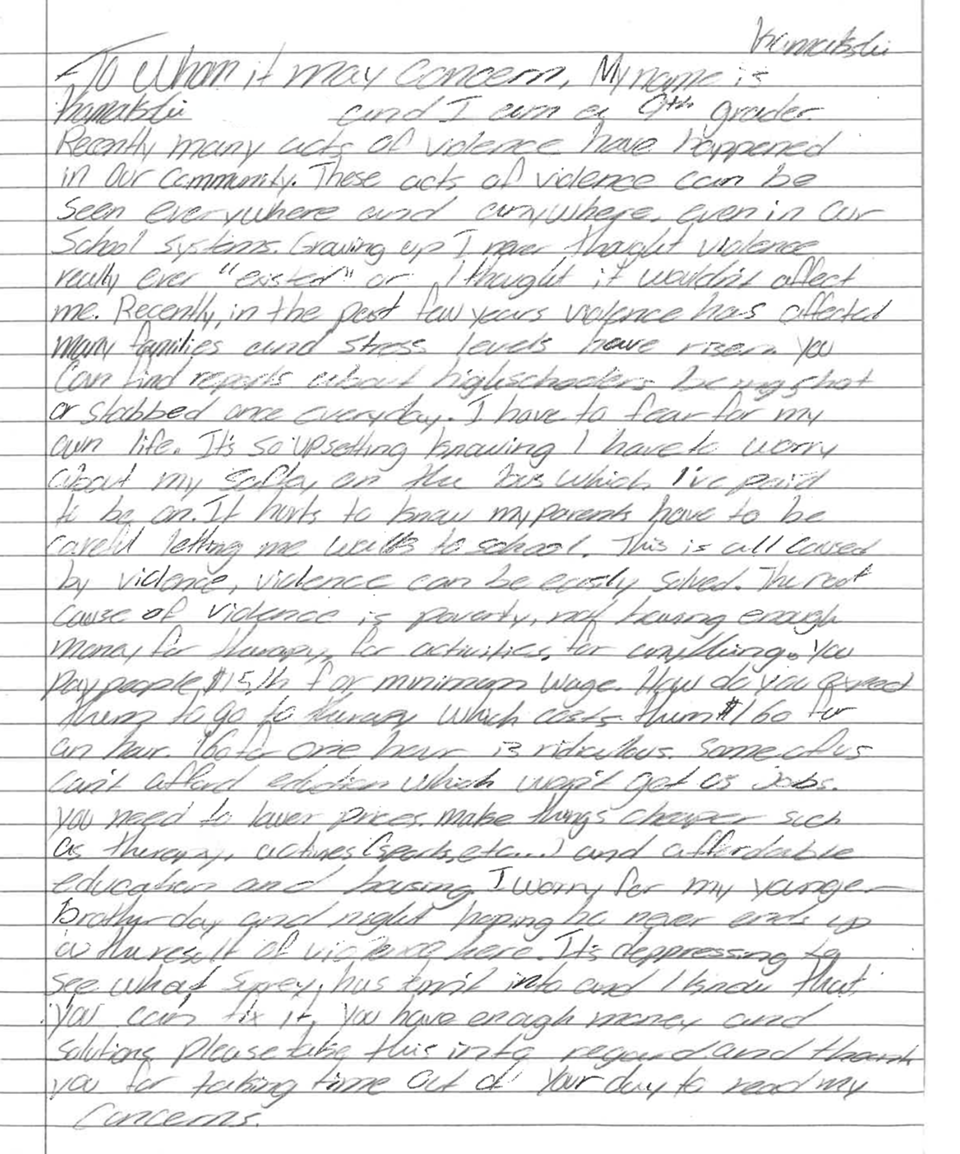 Kamakshi
To whom it may concern, My name is
Kamakshi and I am a 9th grader.
Recently many acts of violence have happened
in our community. These acts of violence can be
seen everywhere and anywhere, even in our
School systems. Growing up I never thought violence
really ever "existed" or I thought it wouldn't affect
me. Recently, in the past few years violence has affected
many families and stress levels have risen. You
can find reports about highschoolers being shot
or stabbed once everyday. I have to fear for my
own life. It's so upsetting knowing I have to worry
about my safley on the bus which I've paid
to be on. It hurts to know my parents have to be
careful letting me walk to school. This is all caused
by violence, violence can be easily solved. The root
cause of violence is poverty, not having enough
money for therapy, for activities, for anything. You
pay people $15/h for minimum wage. How do you expect
them to go to therapy which costs them $160 for
an hour. 160 for one hour is ridiculous. Some of us
can't afford which won't get us jobs.
you need to lower prices. make things cheaper such
as therapy, (sports, etc...) and affordable
education and housing. I worry for my younge
brother day and night hoping he never ends up
as the result of violence here. It's deppressing to
see what Surrey has into and I know that
you can fix it, you have enough money and
solutions please take this into regard and thank
you for taking time out of your day to read my
concerns.